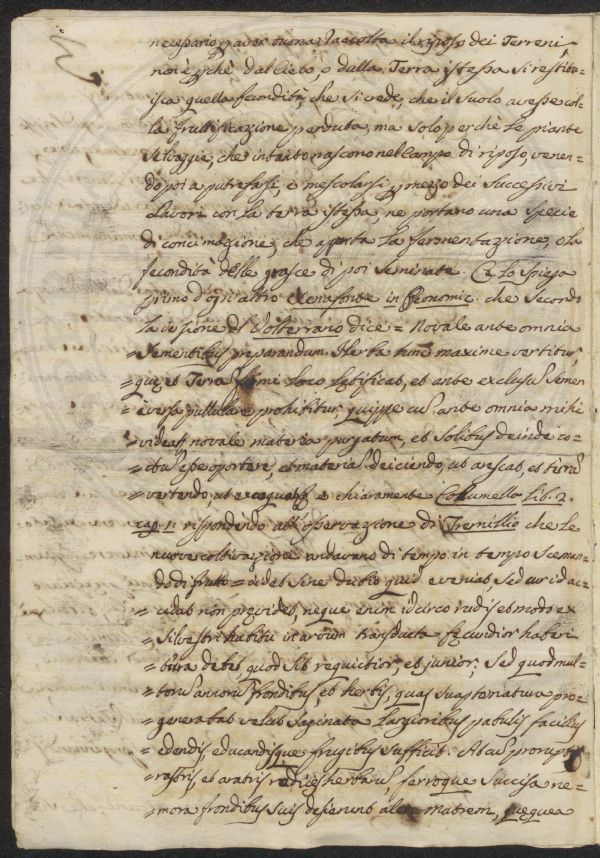 necessario p aver buona raccolta il riposo dei Terreni,
non è pchè dal Cielo, o dalla Terra istessa si restitu=
isca quella fecondità, che si vede, che il suolo avesse col=
la fruttificazione perduta, ma solo perchè le piante
selvaggie, che intanto nascono nel Campo di riposo, venen=
do poi a putrefarsi, e mescolarsi p mezo dei successivi
Lavori con la terra istessa, ne portano una specie
di concimazione, che ajuta la fermentazione, o la
fecondità delle grasce di poi seminate. Ce lo spiega
primo d'ogn'altro Xenofonte in Economic. che secondo
la versione del Volterrano dice = Novale ante omnia
= Sementibus preparandum. Herba tunc maxime vertitur,
= quę et Terra fimi loco lętificat, et ante exclusũ semen
= è versa pullulare prohibetur, quippe cui ante omnia mihi
= videat novale materia purgatum, et solibus deinde co=
= ctũ esse oportere, et materiã deiciendo, ut arescat, et terrã
= vertendo, ut excoquat, e chiaramente Columella Lib. 2.
cap. 1. rispondendo all'osservazione di Tremellio che le
= nuove coltivazioni andavano di tempo in tempo sceman=
do di frutto = videt sine dubio quid eveniat, sed cur id ac=
= cidat non pręvidet, neque enim idcirco rudis et modo ex
= silvestri habitu in arvum transducta fęcundior haberi
= terra debet, quod sit requietior, et junior; sed quod mul=
= torũ annorũ frondibus, et herbis, quas suapte natura pro=
= generabat velut saginata largioribus pabulis facilius
= edendis, educandisque frugibus sufficit. At cũ perruptis
= rastris, et aratris radices herbarũ, ferroque succisa ne=
= mora frondibus suis desierunt alere matrem, quęque